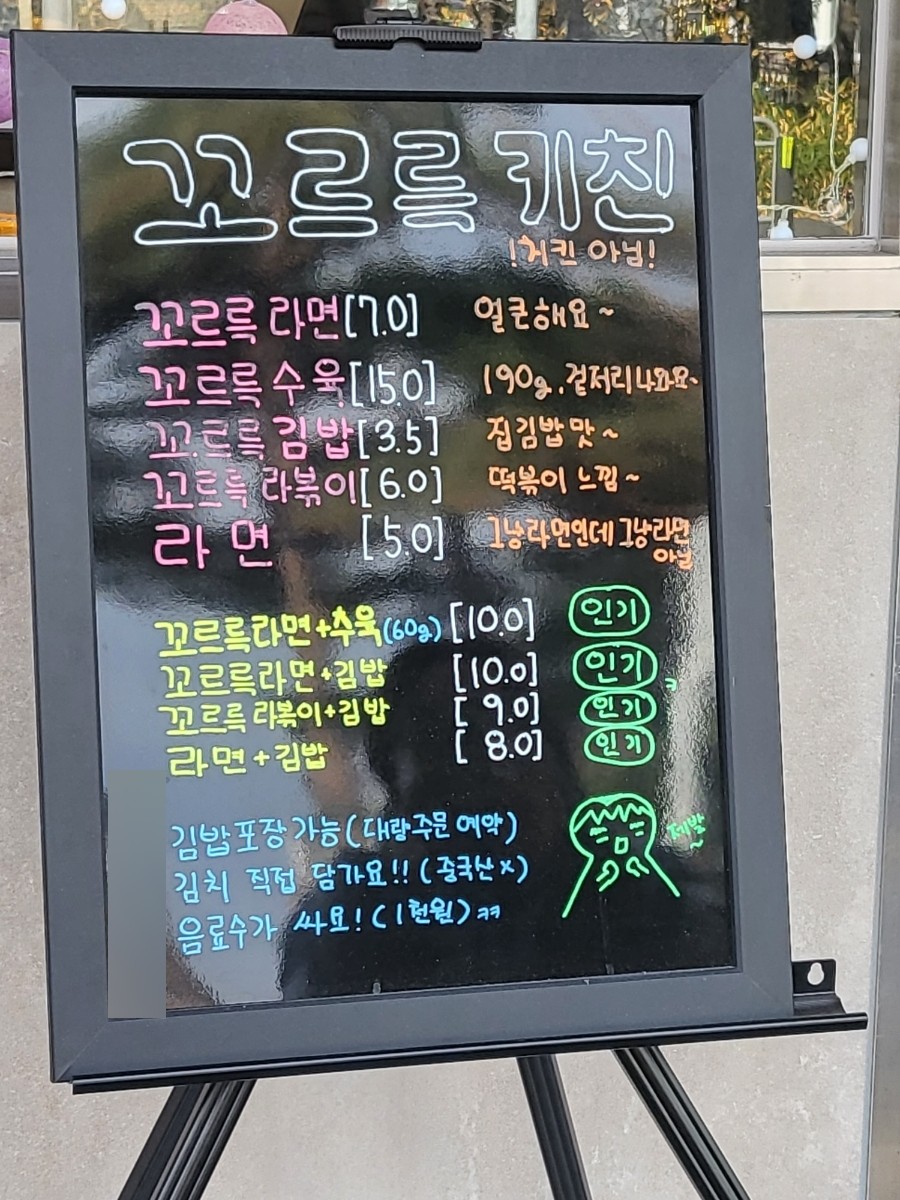 꼬르륵 키친
!치킨 아님!
꼬르륵 라면 [7.0] 얼큰해요~
꼬르륵 수육 [15.0] 190g, 겉저리나와요~
꼬르륵 김밥 [3.5] 집김밥 맛~
꼬르륵 라볶이 [6.0] 떡볶이 느낌~
라면 [5.0] 그냥라면인데 그냥라면
아님
꼬르륵라면+수육(60g) [10.0] 인기
꼬르륵라면+김밥 [10.0] 인기
꼬르륵 라볶이+김밥 [9.0] 인기
라면+김밥 [8.0] 인기
김밥포장 가능 (대량주문 예약)
제발~
김치 직접 담가요!! (중국산x)
음료수가 싸요! (1천원) ㅋㅋ